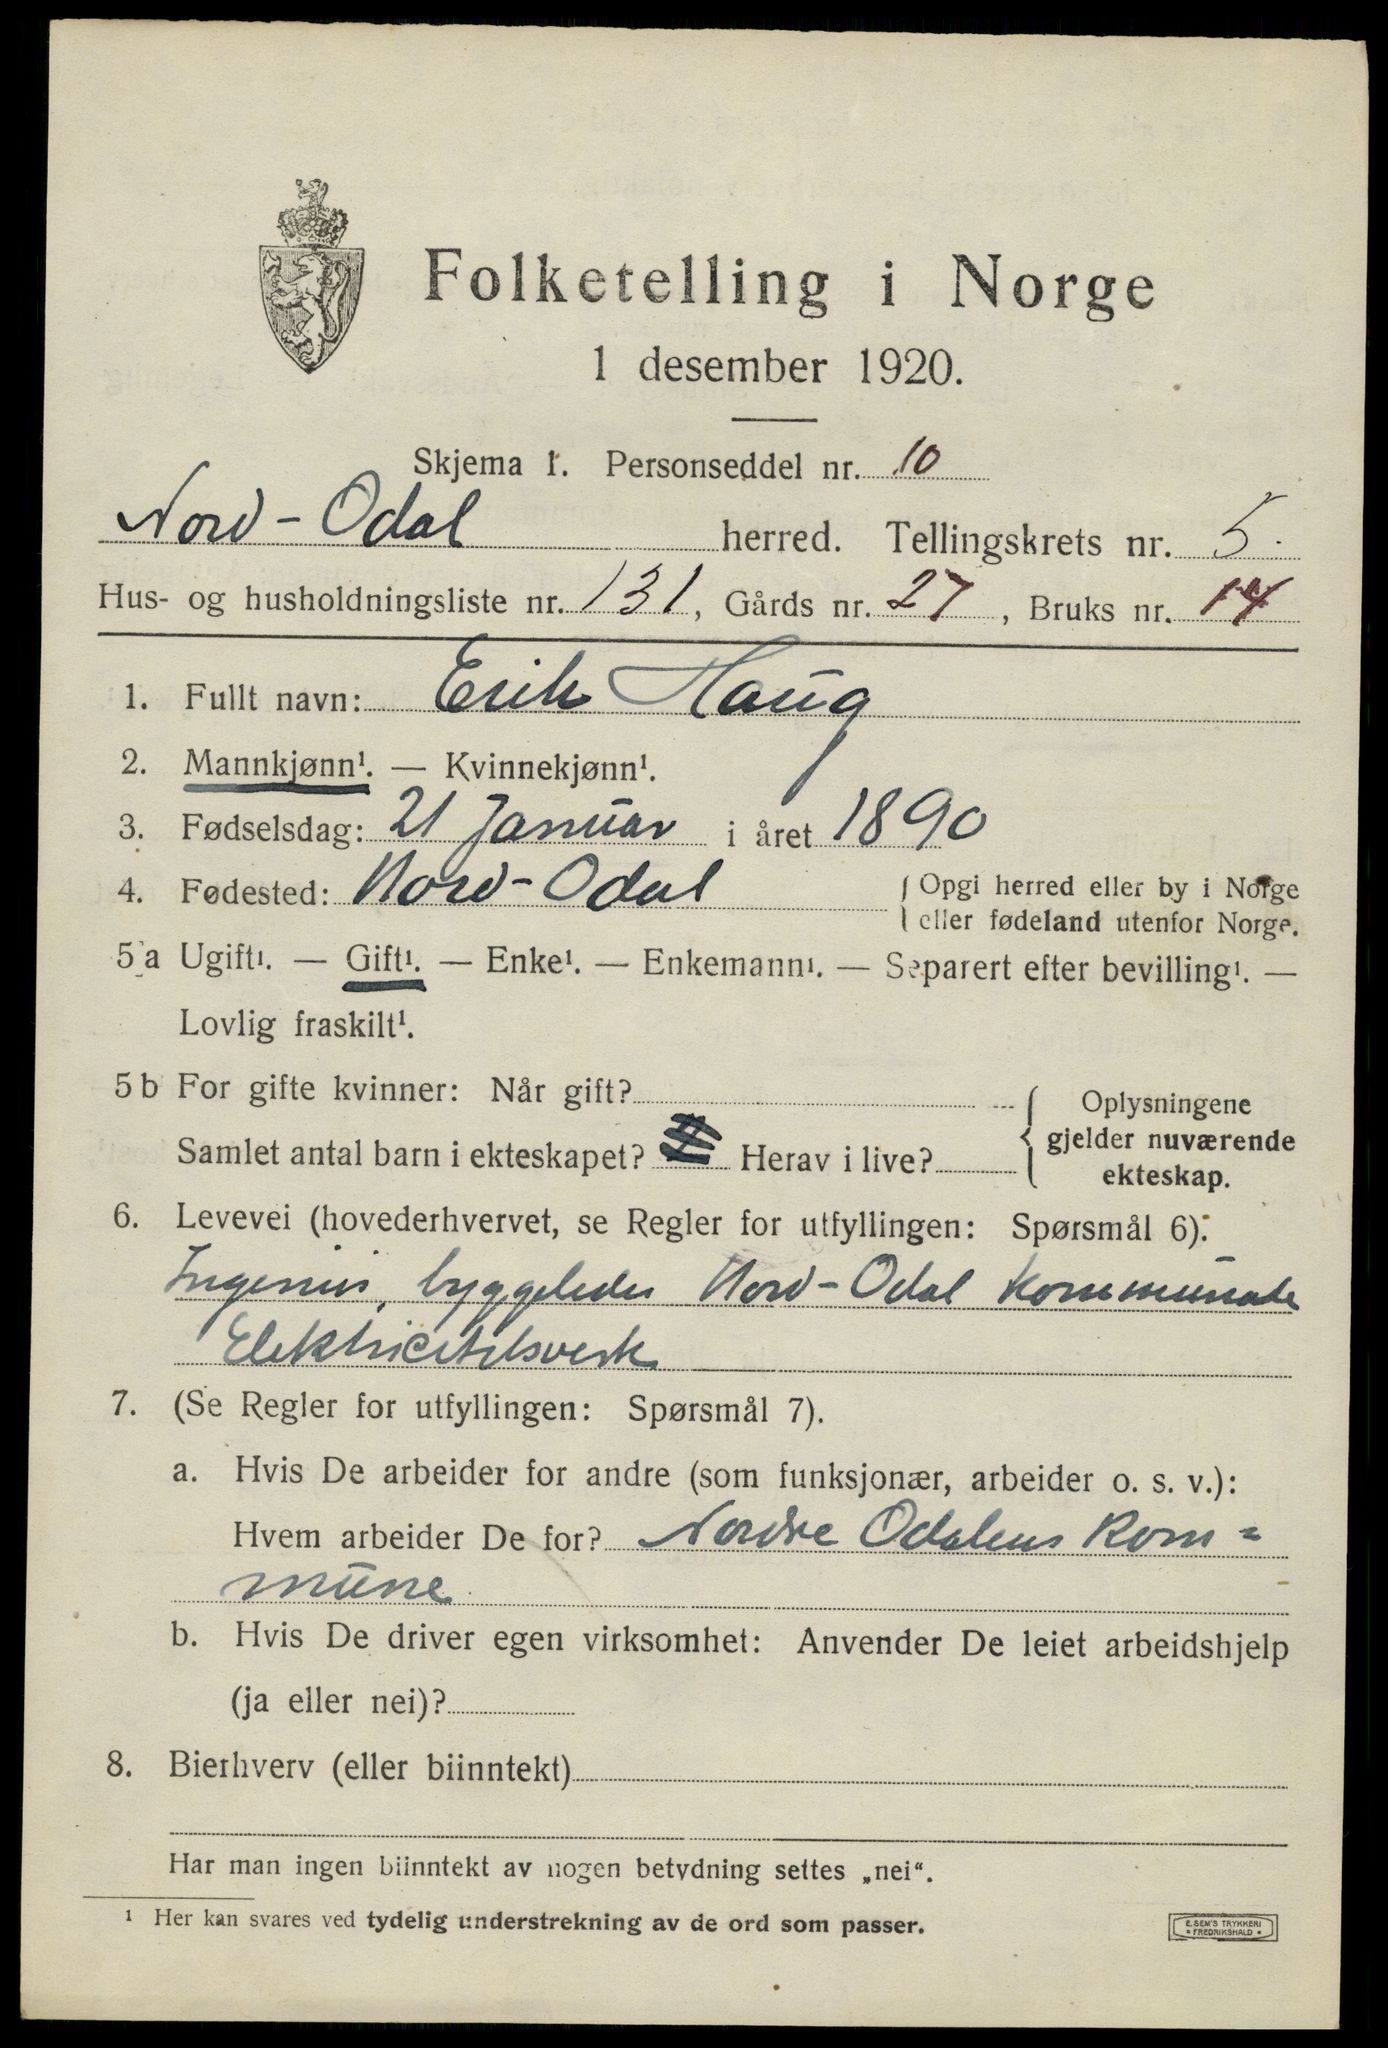 Folketelling i Norge
1 desember 1920.
Skjema 1. Personseddel nr. 10
Nord-Odal herred. Tellingskrets nr. 5.
Hus- og husholdningsliste nr. 131, Gårds nr. 27, Bruks nr. 14
1. Fullt navn: Erik Haug
2. Mannkjønn¹. — Kvinnekjønn¹.
3. Fødselsdag: 21 Januar i året 1890
4. Fødested: Nord-Odal { Opgi herred eller by i Norge
eller fødeland utenfor Norge.
5 a Ugift¹. — Gift¹. — Enke¹. — Enkemann¹. — Separert efter bevilling¹. —
Lovlig fraskilt¹.
5 b For gifte kvinner: Når gift? { Oplysningene
gjelder nuværende
Samlet antal barn i ekteskapet? Herav i live?
ekteskap.
6. Levevei (hovederhvervet, se Regler for utfyllingen: Spørsmål 6):
Ingeniør, byggeleder Nord-Odal Kommunale
Elektricitetsverk
7. (Se Regler for utfyllingen: Spørsmål 7).
a. Hvis De arbeider for andre (som funksjonær, arbeider o. s. v.):
Hvem arbeider De for? Nordre Odalens Kom=
mune
b. Hvis De driver egen virksomhet: Anvender De leiet arbeidshjelp
(ja eller nei)?
8. Bierhverv (eller biinntekt)
Har man ingen biinntekt av nogen betydning settes „nei“.
¹ Her kan svares ved tydelig understrekning av de ord som passer.
E. SEM'S TRYKKERI
• FREDRIKSHALD •